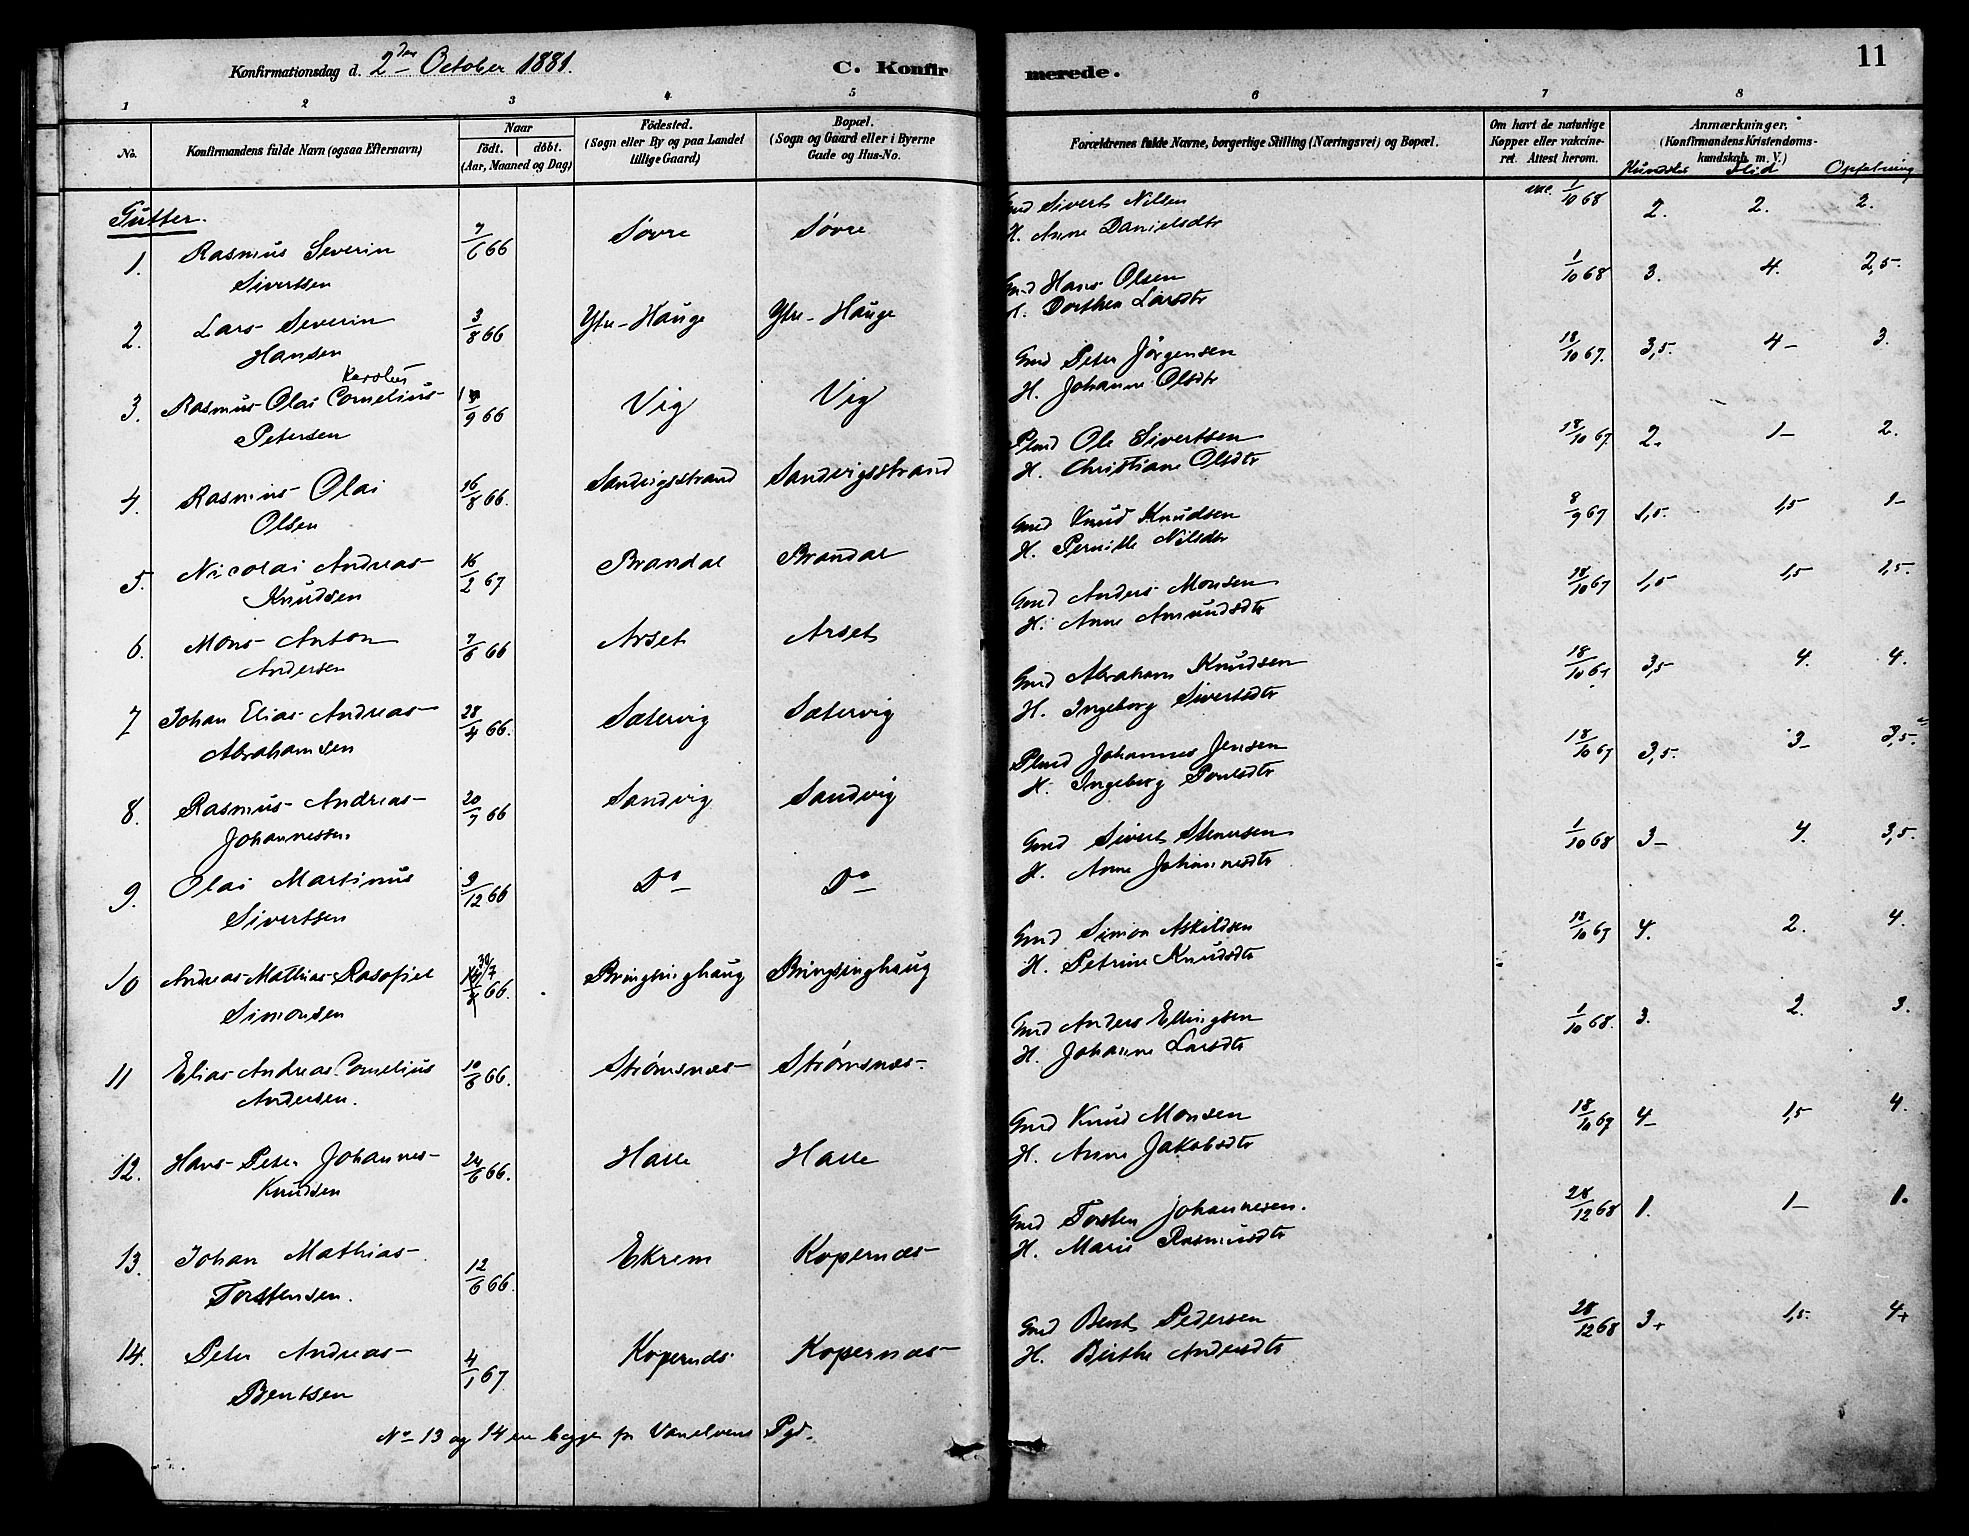 Konfirmationsdag d. 2den October 1881. C. Konfirmerede. 11
1 2 3 4 5 6 7 8
No. Konfirmandens fulde Navn (ogsaa Efternavn) Naar födt. döbt. (Aar, Maaned og Dag) Födested. (Sogn eller By og paa Landet tillige Gaard) Bopæl. (Sogn og Gaard eller i Byerne Gade og Hus-No. Forældrenes fulde Navne, borgerlige Stilling (Næringsvei) og Bopæl. Om havt de naturlige Kopper eller vakcineret. Attest herom. Anmærkninger, (Konfirmandens Kristendomskundskab m. V.)
Kundsk. Flid Opførsel
Gutter.
1. Rasmus Severin 7/6 66 Søvre Søvre Gmd Sivert Nilsen vac. 1/10 68 2. 2. 2.
Sivertsen H. Anne Danielsdtr
2. Lars Severin 3/8 66 Ytre-Hauge Ytre-Hauge Gmd Hans Olsen 1/10 68 3. 4. 2,5.
Hansen H. Dorthea Larsdtr
Karolus
3. Rasmus Olai Cornelius 9 66 Vig Vig Gmd Peter Jörgensen 18/10 67. 3,5. 4- 3.
Petersen H. Johanne Olsdtr
4. Rasmus Olai 16/8 66. Sandvigsstrand Sandvigsstrand Plmd Ole Sivertsen 18/10 67. 2. 1- 2.
Olsen H. Christiane Olsdtr
5. Nicolai Andreas 16/2 67 Brandal Brandal Gmd Knud Knudsen 8/9 67 1,5. 1,5 1-
Knudsen H. Pernille Nilsdtr
6. Mons Anton 7/6 66 Arset Arset Gmd Anders Monsen 18/10 67 1,5 1,5 1,5.
Andersen H. Anne Amundsdtr
7 Johan Elias Andreas 28/4 66. Sætervig Sætervig Gmd Abraham Knudsen 18/10 67 3,5 4. 4.
Abrahamsen H. Ingeborg Sivertsdtr
8. Rasmus Andreas 20/7 66 Sandvig Sandvig Plmd Johannes Jensen 18/10 67 3,5. 3- 3,5.
Johannessen H. Ingeborg Poulsdtr
9. Olai Martinus 9/12 66 Do Do Gmd Sivert Stenersen 1/10 68 3- 4. 3,5.
Sivertsen H. Anne Johannesdtr
10 Andreas Mathias Rasofiel 30/7 66. Bringsinghaug Bringsinghaug Gmd Simon Askildsen 18/10 67 4. 2. 4.
Simonsen H. Petrine Knudsdtr
11 Elias Andreas Cornelius 10/6 66. Strømsnæs Strømsnæs. Gmd Anders Ellingsen 1/10 68. 3. 2. 3.
Andersen. H. Johanne Larsdtr
12. Hans Peter Johannes 24/6 66. Halle Halle Gmd Knud Monsen 18/10 67 4- 1,5 4.
Knudsen H. Anne Jakobsdtr
13. Johan Mathias 12/6 66. Ekrem Kopernæs Gmd Torsten Johannesen. 28/12 68 1. 1- 1.
Torstensen. H. Marie Rasmusdtr
14. Peter Andreas 4/1 67 Kopernæs Kopernæs Gmd Bent Pedersen 28/12 68 3+ 1,5. 4+
Bentsen H. Birthe Andersdtr
No 13 og 14 ere begge fra Vanelvens Pgd.